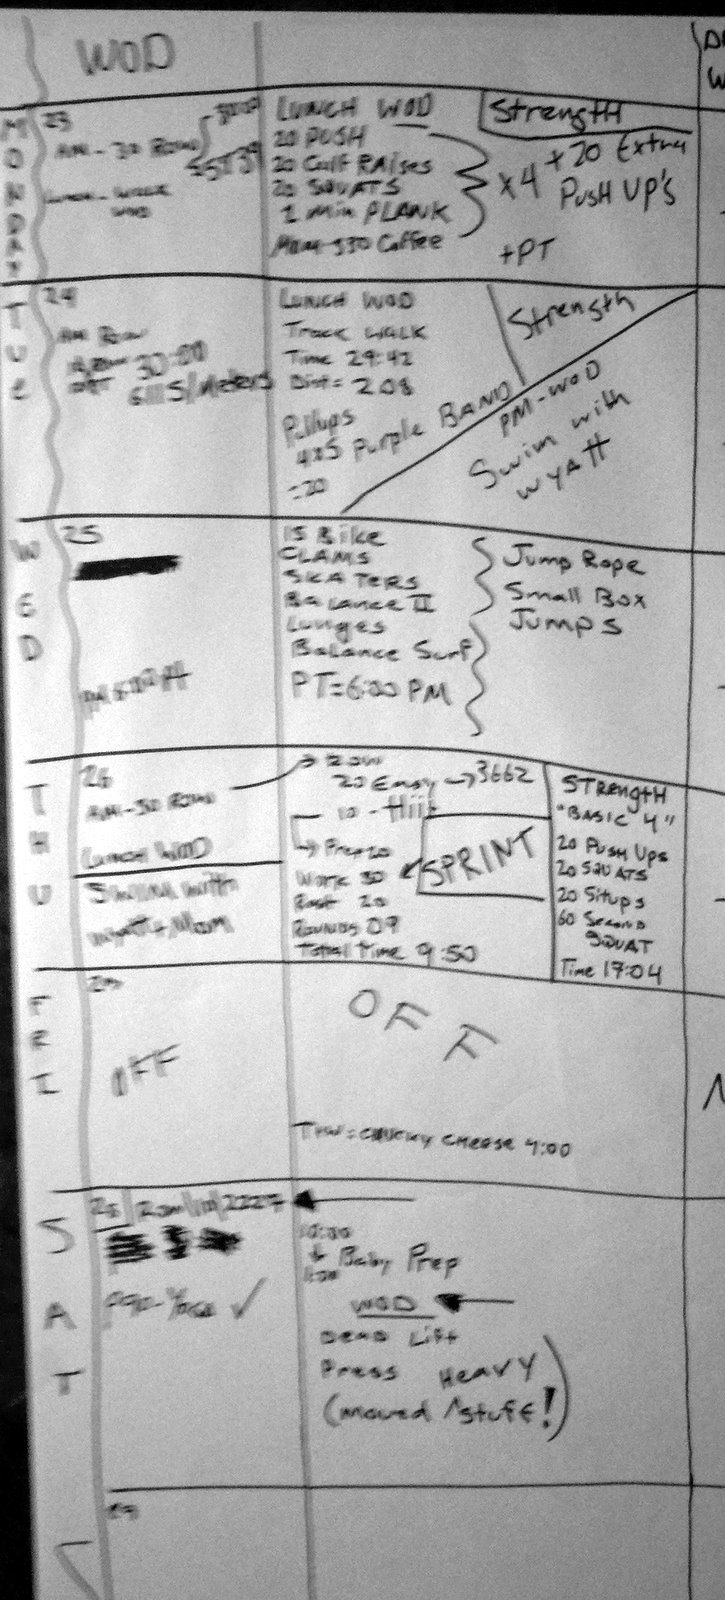 WOD
MONDAY
23
AM-30 ROW
LUNCH-WALK
WOD
LUNCH WOD
20 PUSH
20 Calf RAises
20 SQUATS
1 Min PLANK
x4
Strength
+20 Extra
PUSH UP's
+PT
TUE
24
AM Row
30:00
LUNCH WOD
Track WALK
Time 29:42
Dist= 2.08
Pullups
4x5 Purple BAND
=20
Strength
PM-WOD
Swim with
WYATT
WED
25
15 Bike
CLAMS
SKATERS
Balance II
Lunges
Balance Surf
PT=6:00 PM
Jump Rope
Small Box
Jumps
THU
26
AM-30 ROW
LUNCH WOD
Swim with
Wyatt/Mom
ROW
20 Easy → 3662
10 - Hiit
Prep 20
Work 30
Rest 20
Rounds 09
Total Time 9:50
SPRINT
STRengtH
"BASIC 4"
20 Push Ups
20 SQUATS
20 Situps
60 Second
SQUAT
Time 17:04
FRI
OFF
OFF
CHEESE 4:00
SAT
28/Row/10/2227
Baby Prep
WOD
DEAD Lift
Press HEAVY
(moved stuff!)
29